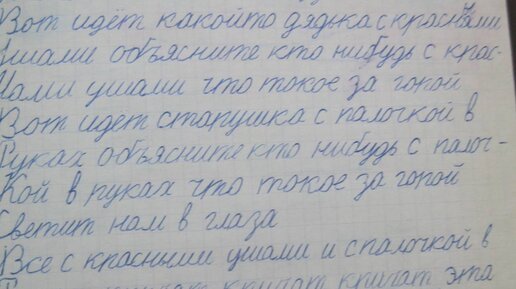 Вот идёт какойто дядька с красными
Ушами объясните кто нибудь с крас-
Нами ушами что токое за горой
Вот идет старушка с палочкой в
Руках объясните кто нибудь с палоч-
Кой в руках что токое за горой
Светит нам в глаза
Все с красными ушами и с палочкой в
кричат кричат эта